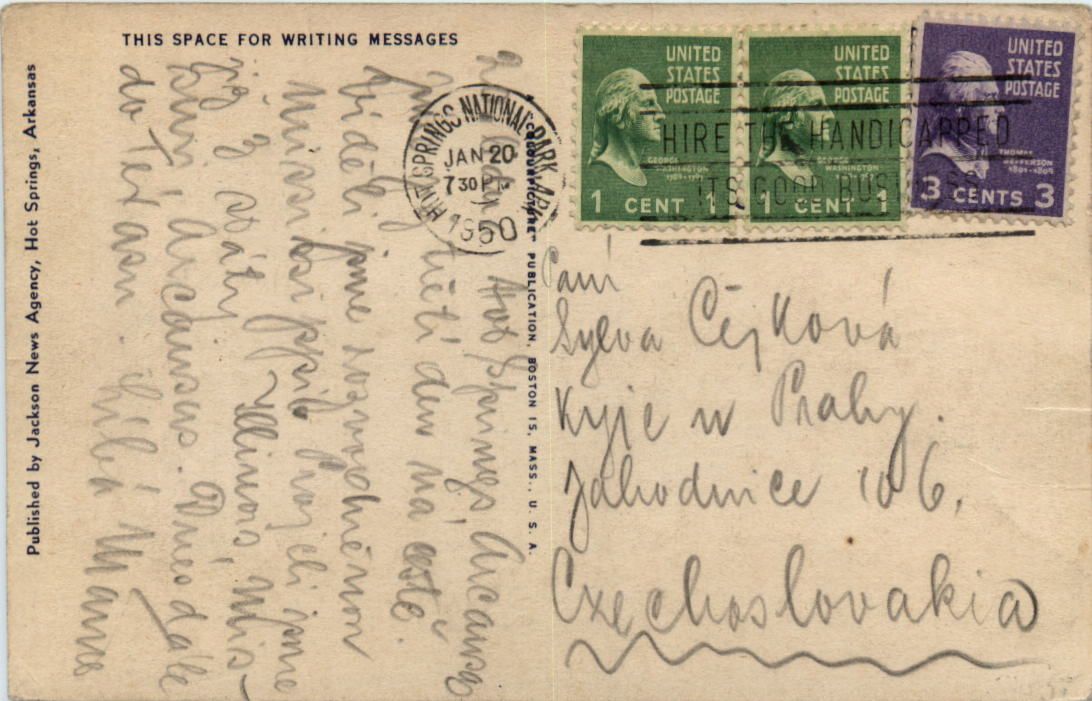 THIS SPACE FOR WRITING MESSAGES
Published by Jackson News Agency, Hot Springs, Arkansas
"COLOURPICTURE" PUBLICATION, BOSTON 15, MASS., U. S. A.
Hot Springs Arcansas
třetí den na cestě.
Viděli jsme rozvodněnou
Projeli jsme
již 3 státy Illinois, Mis-
suri Arcansas. Dnes dále
do Texasu. Líbá Mama
HOT SPRINGS NATIONAL PARK, ARK.
JAN 20
7 30 PM
1950
HIRE THE HANDICAPPED
ITS GOOD BUSINESS
UNITED
STATES
POSTAGE
GEORGE
WASHINGTON
1789-1797
1 CENT 1
UNITED
STATES
POSTAGE
GEORGE
WASHINGTON
1 CENT 1
UNITED
STATES
POSTAGE
THOMAS
JEFFERSON
1801-1809
3 CENTS 3
Paní
Sylva Čejková
Kyje u Prahy.
Jahodnice 106.
Czechoslovakia